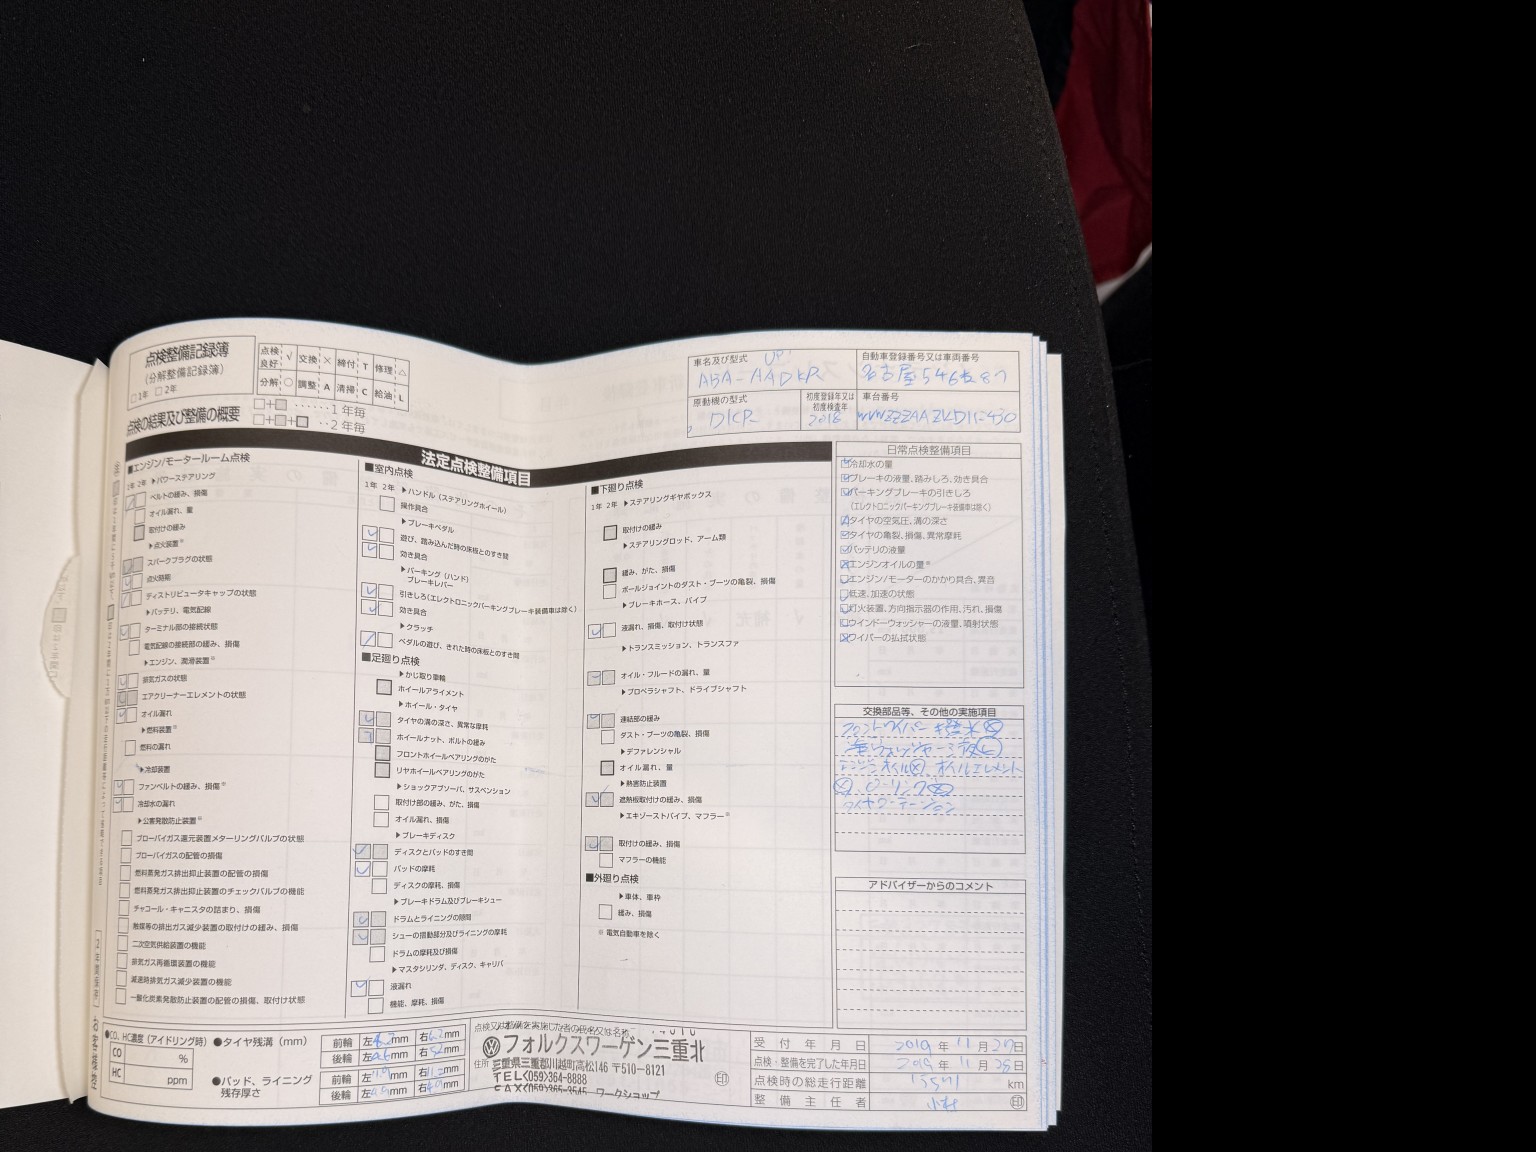 点検整備記録簿
(分解整備記録簿)
□1年 □2年
点検良好 √ 交換 × 締付 T 修理 △
分解 ○ 調整 A 清掃 C 給油 L
点検の結果及び整備の概要
□+□ ‥‥‥1年毎
□+□+□ ‥2年毎
車名及び型式 UP
ABA-AADKR
自動車登録番号又は車両番号
名古屋546
原動機の型式
初度登録年又は初度検査年
2018
車台番号
法定点検整備項目
■エンジン/モータールーム点検
1年 2年 ▶パワーステアリング
ベルトの緩み、損傷
オイル漏れ、量
取付けの緩み
▶点火装置※
スパークプラグの状態
点火時期
ディストリビュータキャップの状態
▶バッテリ、電気配線
ターミナル部の接続状態
電気配線の接続部の緩み、損傷
▶エンジン、潤滑装置※
排気ガスの状態
エアクリーナーエレメントの状態
オイル漏れ
▶燃料装置※
燃料の漏れ
▶冷却装置
ファンベルトの緩み、損傷※
冷却水の漏れ
▶公害発散防止装置※
ブローバイガス還元装置メターリングバルブの状態
ブローバイガスの配管の損傷
燃料蒸発ガス排出抑止装置の配管の損傷
燃料蒸発ガス排出抑止装置のチェックバルブの機能
チャコール・キャニスタの詰まり、損傷
触媒等の排出ガス減少装置の取付けの緩み、損傷
二次空気供給装置の機能
排気ガス再循環装置の機能
減速時排気ガス減少装置の機能
一酸化炭素発散防止装置の配管の損傷、取付け状態
■室内点検
1年 2年 ▶ハンドル(ステアリングホイール)
操作具合
▶ブレーキペダル
遊び、踏み込んだ時の床板とのすき間
効き具合
▶パーキング(ハンド)
ブレーキレバー
引きしろ(エレクトロニックパーキングブレーキ装備車は除く)
効き具合
▶クラッチ
ペダルの遊び、きれた時の床板とのすき間
■足廻り点検
▶かじ取り車輪
ホイールアライメント
▶ホイール・タイヤ
タイヤの溝の深さ、異常な摩耗
ホイールナット、ボルトの緩み
フロントホイールベアリングのがた
リヤホイールベアリングのがた
▶ショックアブソーバ、サスペンション
取付け部の緩み、がた、損傷
オイル漏れ、損傷
▶ブレーキディスク
ディスクとパッドのすき間
パッドの摩耗
ディスクの摩耗、損傷
▶ブレーキドラム及びブレーキシュー
ドラムとライニングの隙間
シューの摺動部分及びライニングの摩耗
ドラムの摩耗及び損傷
▶マスタシリンダ、ディスク、キャリパ
液漏れ
機能、摩耗、損傷
■下廻り点検
1年 2年 ▶ステアリングギヤボックス
取付けの緩み
▶ステアリングロッド、アーム類
緩み、がた、損傷
ボールジョイントのダスト・ブーツの亀裂、損傷
▶ブレーキホース、パイプ
液漏れ、損傷、取付け状態
▶トランスミッション、トランスファ
オイル・フルードの漏れ、量
▶プロペラシャフト、ドライブシャフト
連結部の緩み
ダスト・ブーツの亀裂、損傷
▶デファレンシャル
オイル漏れ、量
▶熱害防止装置
遮熱板取付けの緩み、損傷
▶エキゾーストパイプ、マフラー※
取付けの緩み、損傷
マフラーの機能
■外廻り点検
▶車体、車枠
緩み、損傷
※ 電気自動車を除く
日常点検整備項目
冷却水の量
ブレーキの液量、踏みしろ、効き具合
パーキングブレーキの引きしろ
(エレクトロニックパーキングブレーキ装備車は除く)
タイヤの空気圧、溝の深さ
タイヤの亀裂、損傷、異常摩耗
バッテリの液量
エンジンオイルの量※
エンジン/モーターのかかり具合、異音
低速、加速の状態
灯火装置、方向指示器の作用、汚れ、損傷
ウインドーウォッシャーの液量、噴射状態
ワイパーの払拭状態
交換部品等、その他の実施項目
エンジンオイル オイルエレメント
タイヤローテーション
アドバイザーからのコメント
●CO、HC濃度(アイドリング時)
CO %
HC ppm
●タイヤ残溝(mm)
前輪 左 mm 右 mm
後輪 左 mm 右 mm
●パッド、ライニング
残存厚さ
前輪 左 mm 右 mm
後輪 左 mm 右 mm
点検又は整備を実施した者の氏名又は名称
フォルクスワーゲン三重北
住所 三重県三重郡川越町高松146 〒510-8121
TEL<059>364-8888
FAX(059)365-3545 ワークショップ
印
受付年月日 2019年11月27日
点検・整備を完了した年月日 2019年11月28日
点検時の総走行距離 km
整備主任者 印